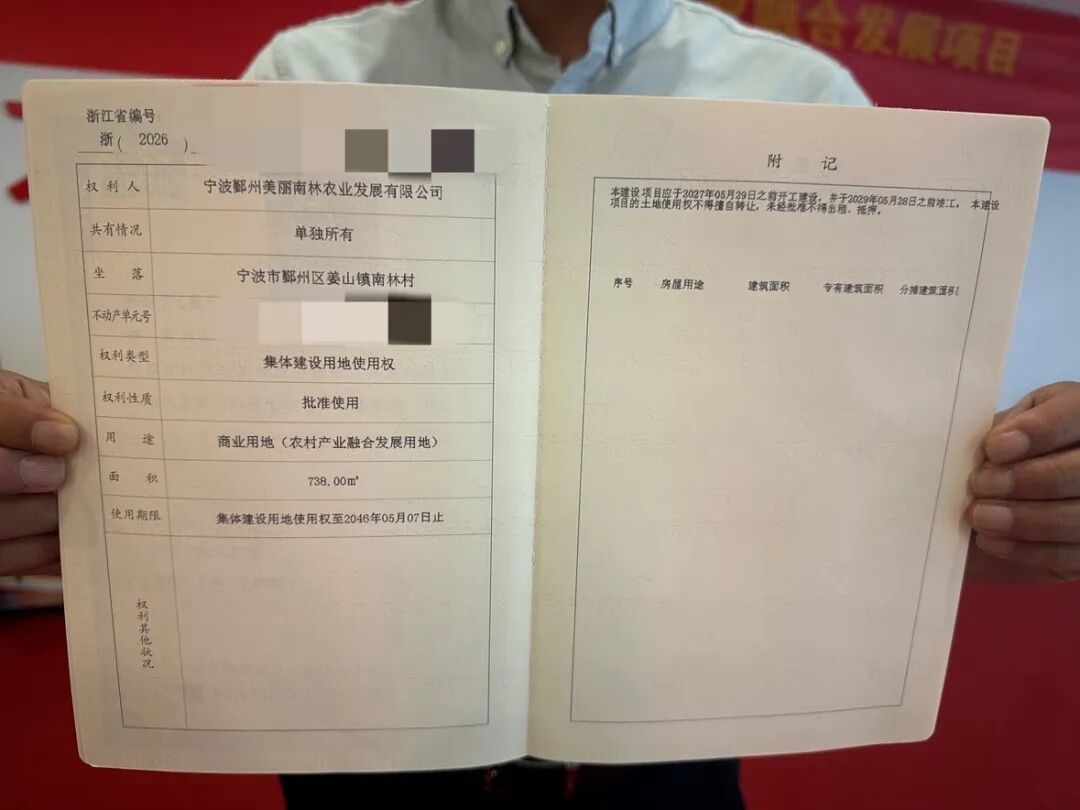 融合发展项目
浙江省编号
浙( 2026 )
权利人 宁波鄞州美丽南林农业发展有限公司
共有情况 单独所有
坐落 宁波市鄞州区姜山镇南林村
不动产单元号
权利类型 集体建设用地使用权
权利性质 批准使用
用途 商业用地（农村产业融合发展用地）
面积 738.00㎡
使用期限 集体建设用地使用权至2046年05月07日止
权利其他状况
附记
本建设项目应于2027年05月29日之前开工建设，并于2029年05月28日之前竣工， 本建设
项目的土地使用权不得擅自转让，未经批准不得出租、抵押。
序号 房屋用途 建筑面积 专有建筑面积 分摊建筑面积